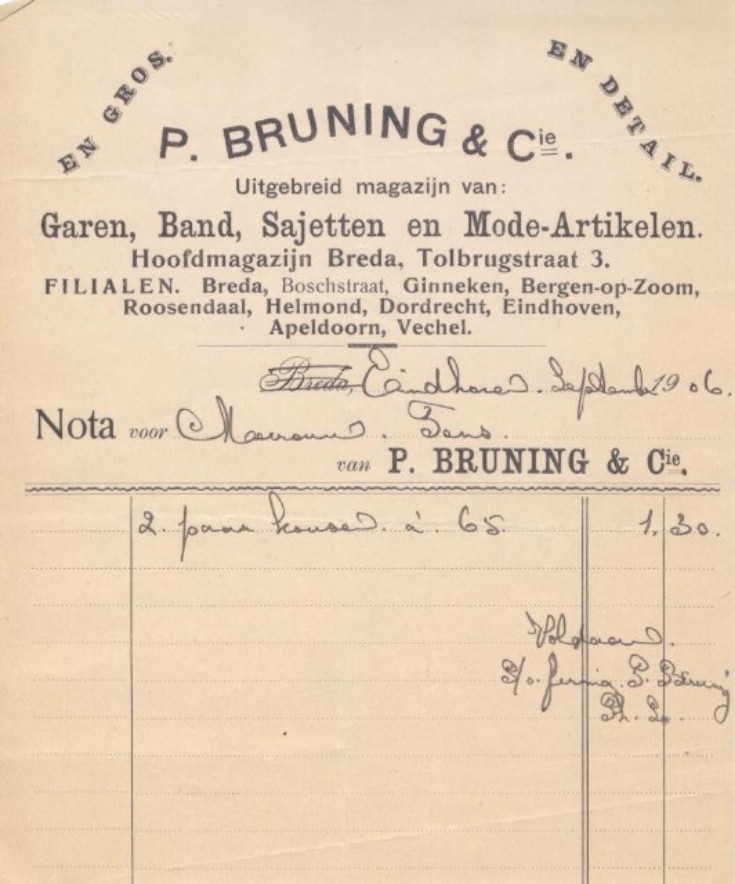 EN GROS.
EN DETAIL.
P. BRUNING & Cie.
Uitgebreid magazijn van:
Garen, Band, Sajetten en Mode-Artikelen.
Hoofdmagazijn Breda, Tolbrugstraat 3.
FILIALEN. Breda, Boschstraat, Ginneken, Bergen-op-Zoom,
Roosendaal, Helmond, Dordrecht, Eindhoven,
Apeldoorn, Vechel.
Breda, Eindhoven. September 1906.
Nota voor Mevrouw.
van P. BRUNING & Cie.
2. paar kousen. à. 65. 1.30.
Voldaan.
firma. P. Bruning